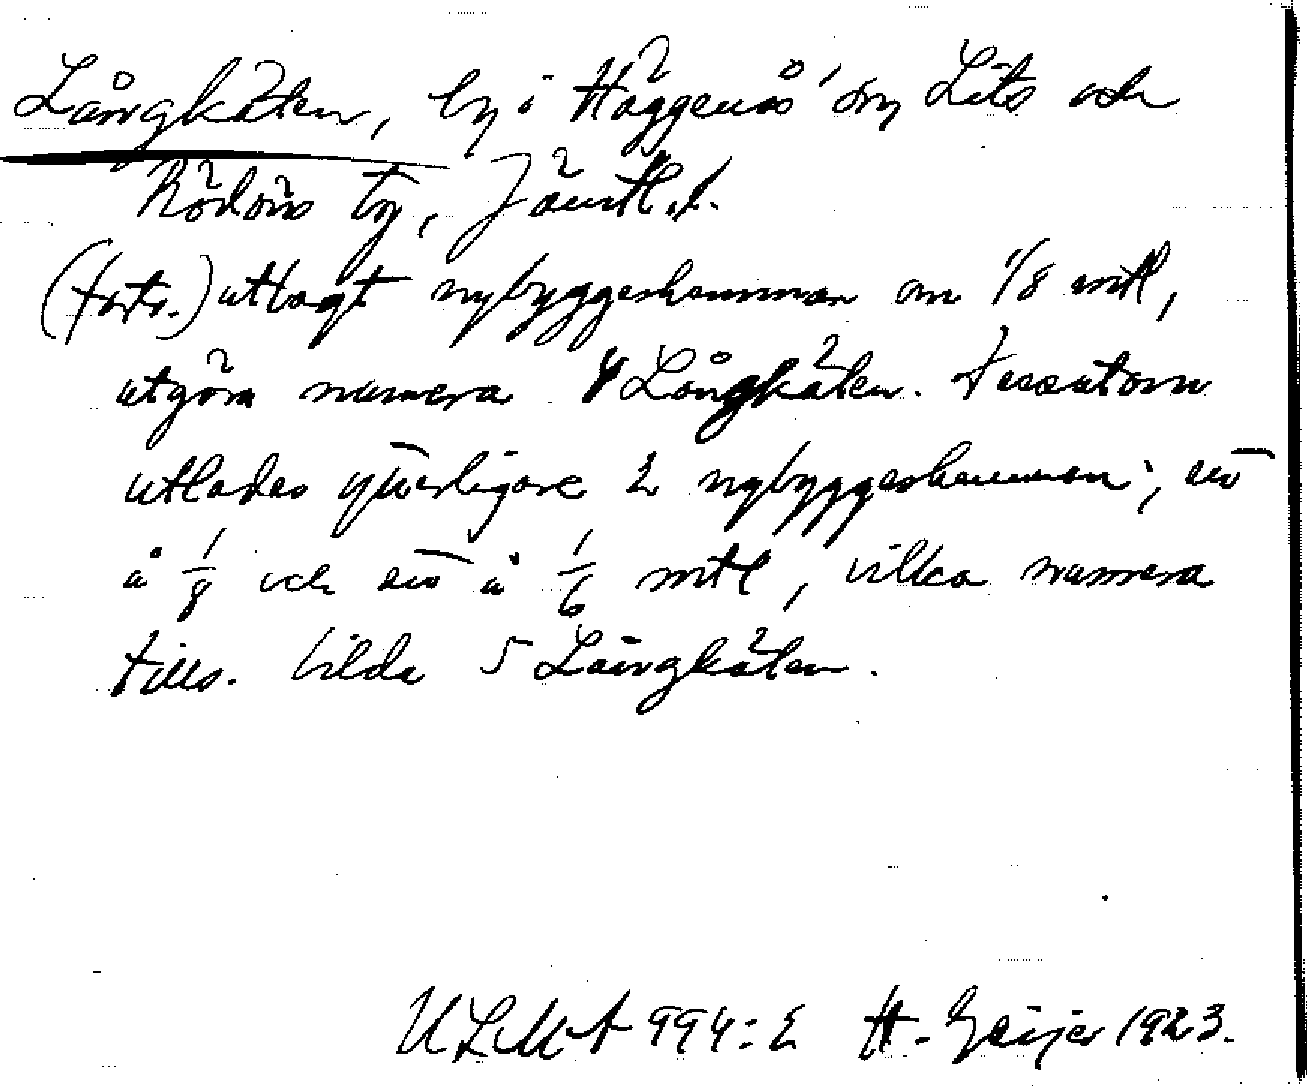 Långkälen, by i Häggenås' sn, Lits och
Rödöns tg, Jämtl.l.
(forts.) utlagt nybyggeshemman om 1/8 mtl,
utgöra numera 4 Långkälen. Dessutom
utlades ytterligare 2 nybyggeshemman, ett
à 1/8 och ett à 1/6 mtl, vilka numera
tills. bilda 5 Långkälen.
ULMA 994:2 H. Geijer 1923.